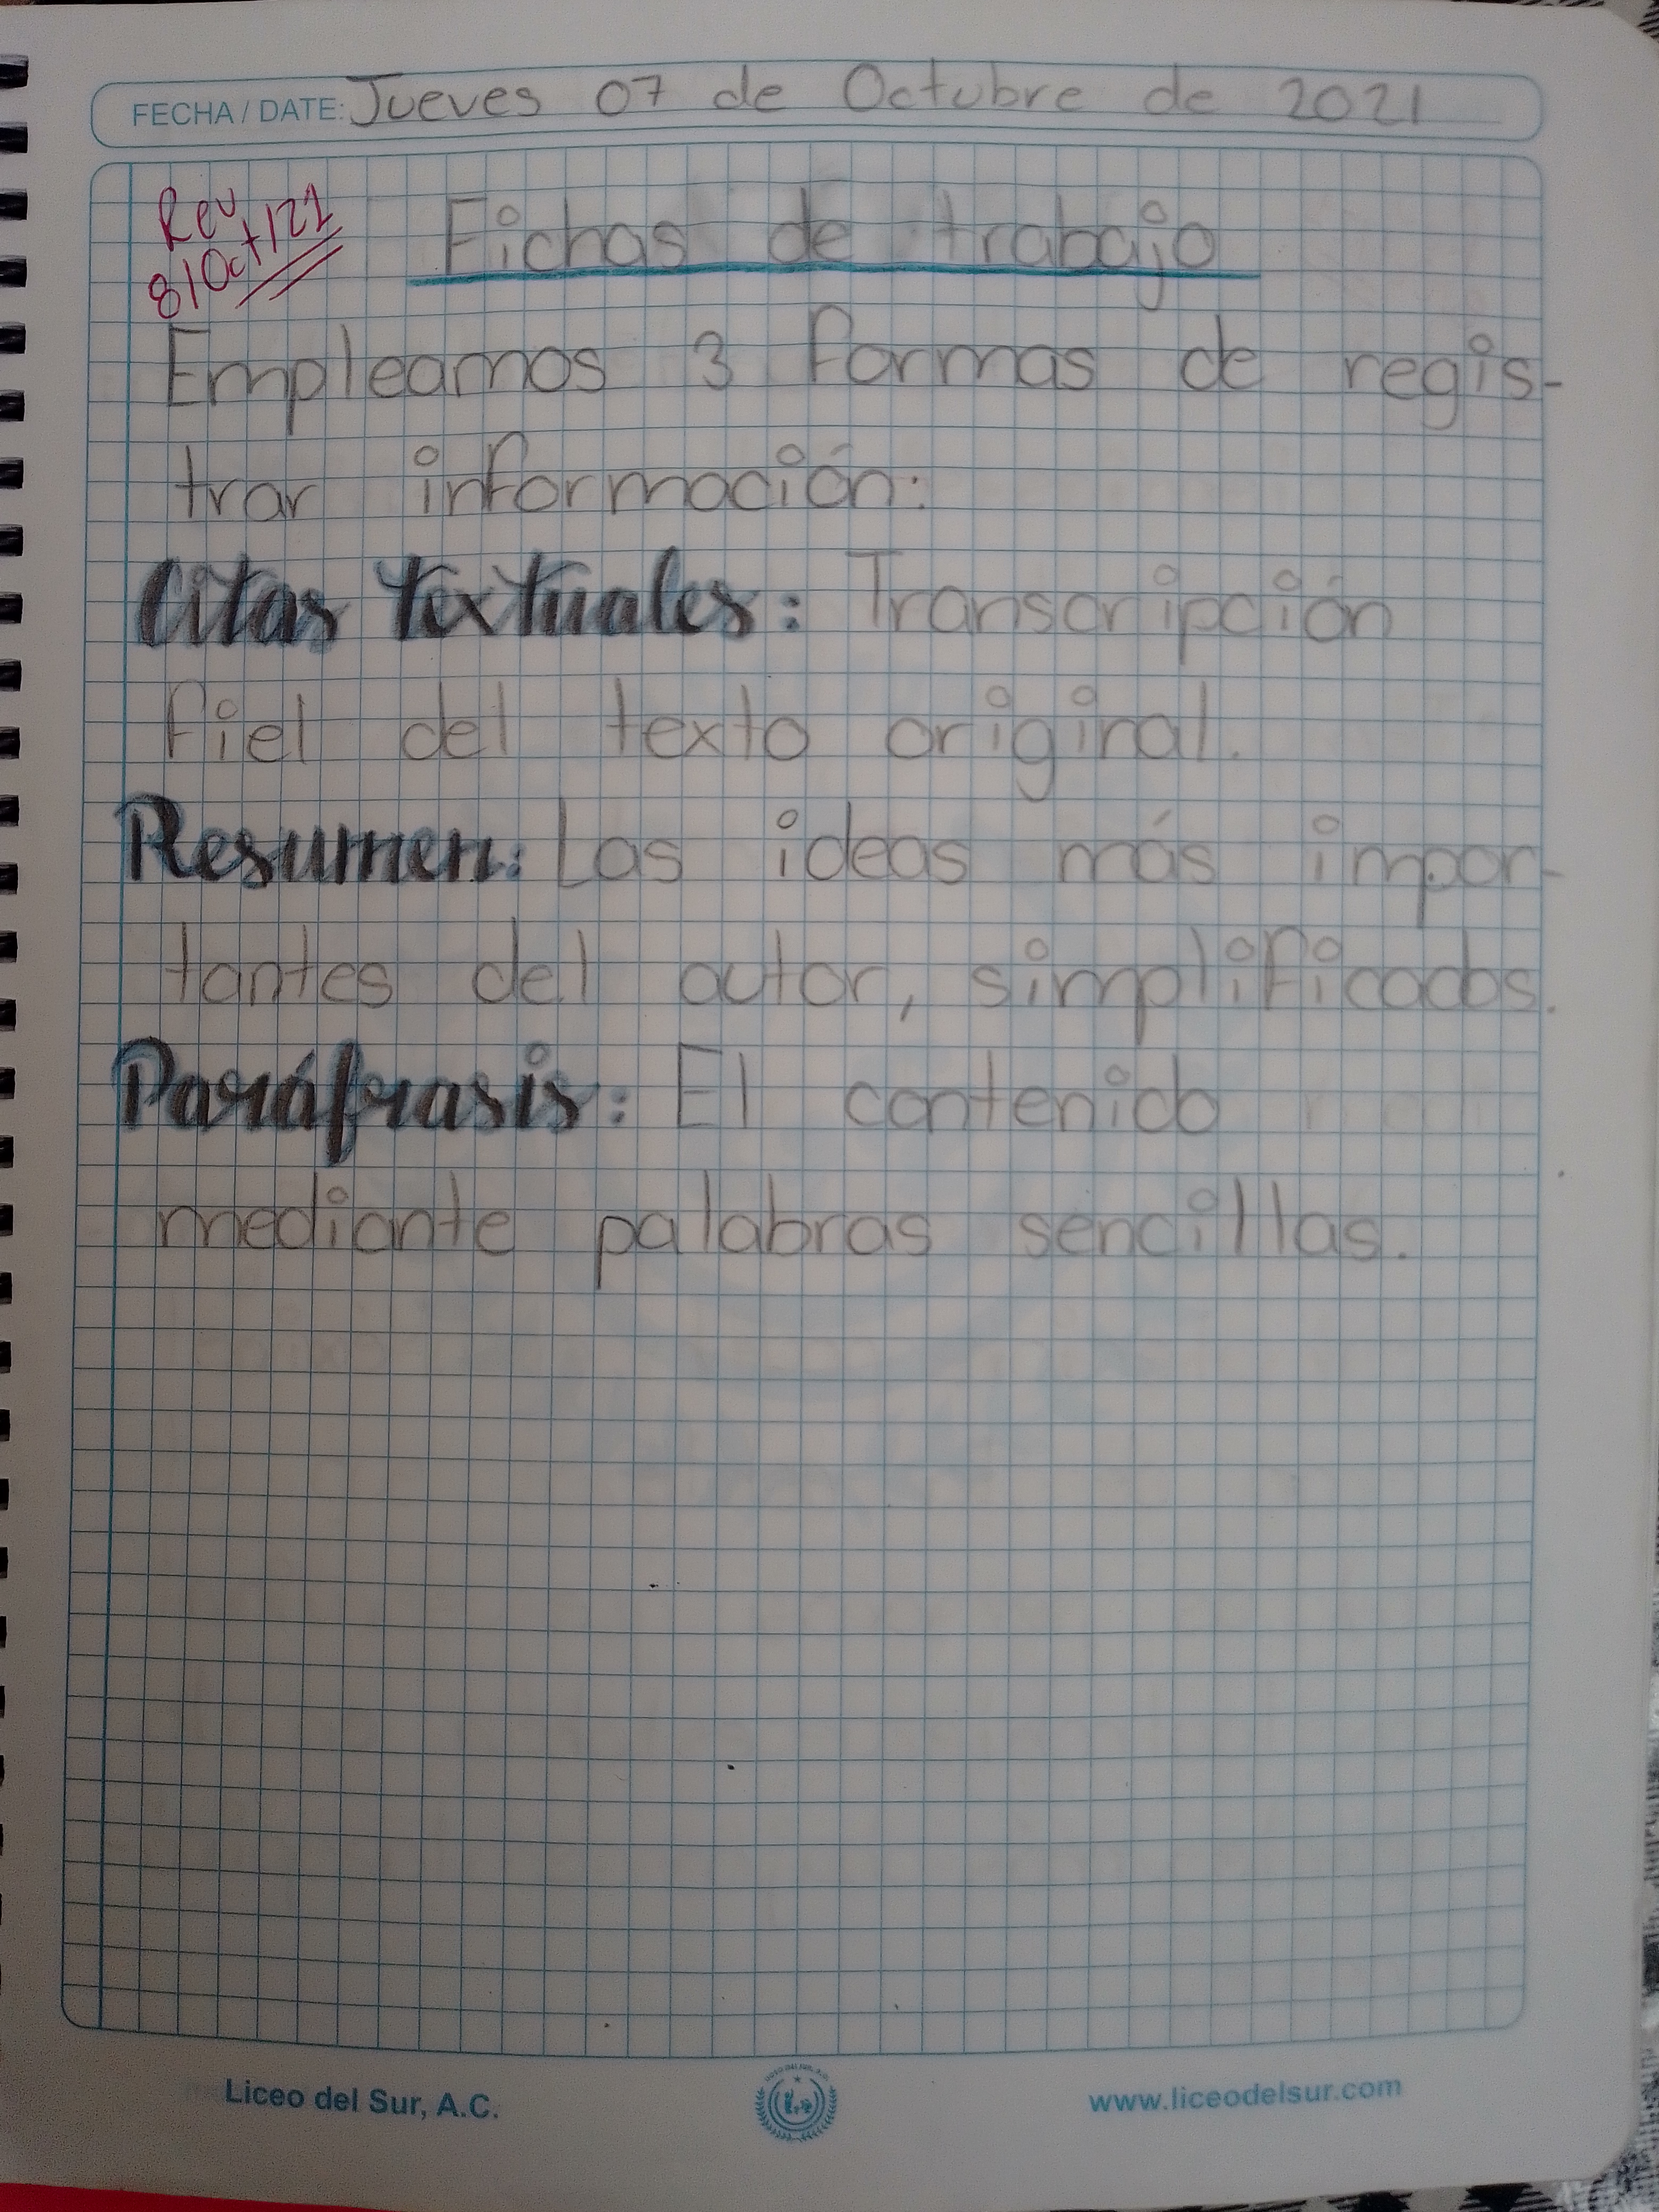 FECHA / DATE: Jueves 07 de Octubre de 2021
Rev
8/Oct/21
Fichas de trabajo
Empleamos 3 formas de regis-
trar información:
Citas textuales: Transcripción
fiel del texto original.
Resumen: Las ideas más impor-
tantes del autor, simplificados.
Paráfrasis: El contenido
mediante palabras sencillas.
Liceo del Sur, A.C.
www.liceodelsur.com